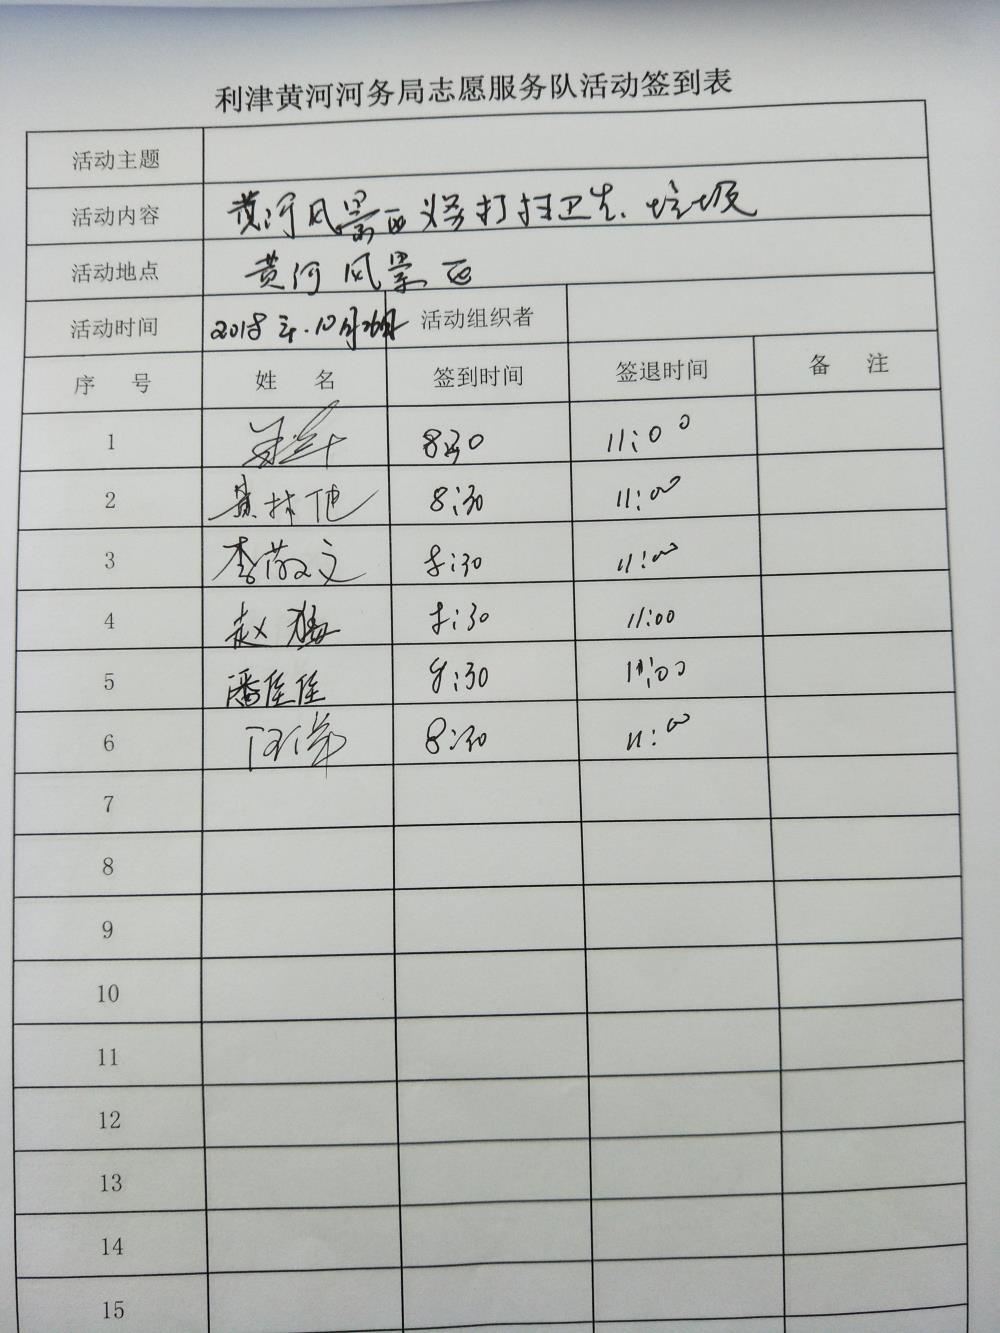 利津黄河河务局志愿服务队活动签到表
活动主题
活动内容 黄河风景区义务打扫卫生、垃圾
活动地点 黄河风景区
活动时间 2018年.10月26日 活动组织者
序号 姓名 签到时间 签退时间 备注
1 8:30 11:00
2 8:30 11:00
3 李敬文 8:30 11:00
4 赵猛 8:30 11:00
5 潘佳佳 8:30 11:00
6 8:30 11:00
7
8
9
10
11
12
13
14
15